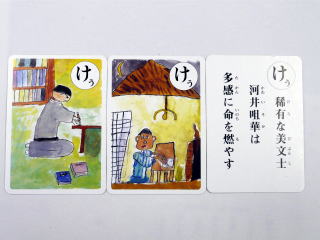 けぅ
けぅ
けぅ
稀有な美文士
河井咀華は
多感に命を燃やす